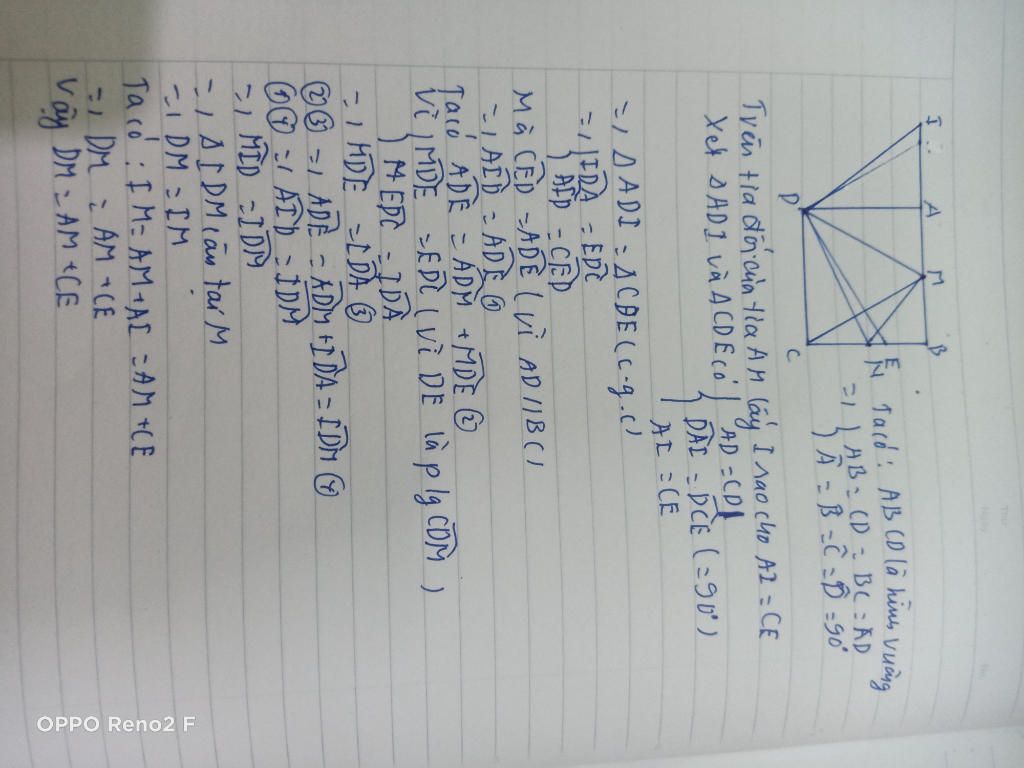 I A M B
D C N E
Ta có: ABCD là hình vuông
=, } AB = CD = BC = AD
} Â = B̂ = Ĉ = D̂ = 90°
Trên tia đối của tia AM lấy I sao cho AI = CE
Xét △ADI và △CDE có } AD = CD
} DAI = DCE (= 90°)
AI = CE
=, △ADI = △CDE (c-g.c)
=, } IDA = EDC
} AID = CED
Mà CED = ADE (vì AD // BC)
=, AID = ADE ①
Ta có ADE = ADM + MDE ②
Vì } MDE = EDC (vì DE là p/g CDM)
} EDC = IDA
=, MDE = IDA ③
② ③ =, ADE = ADM + IDA = IDM ④
① ④ =, AID = IDM
=, MID = IDM
=, △IDM cân tại M
=, DM = IM
Ta có: IM = AM + AI = AM + CE
=, DM = AM + CE
Vậy DM = AM + CE
OPPO Reno2 F